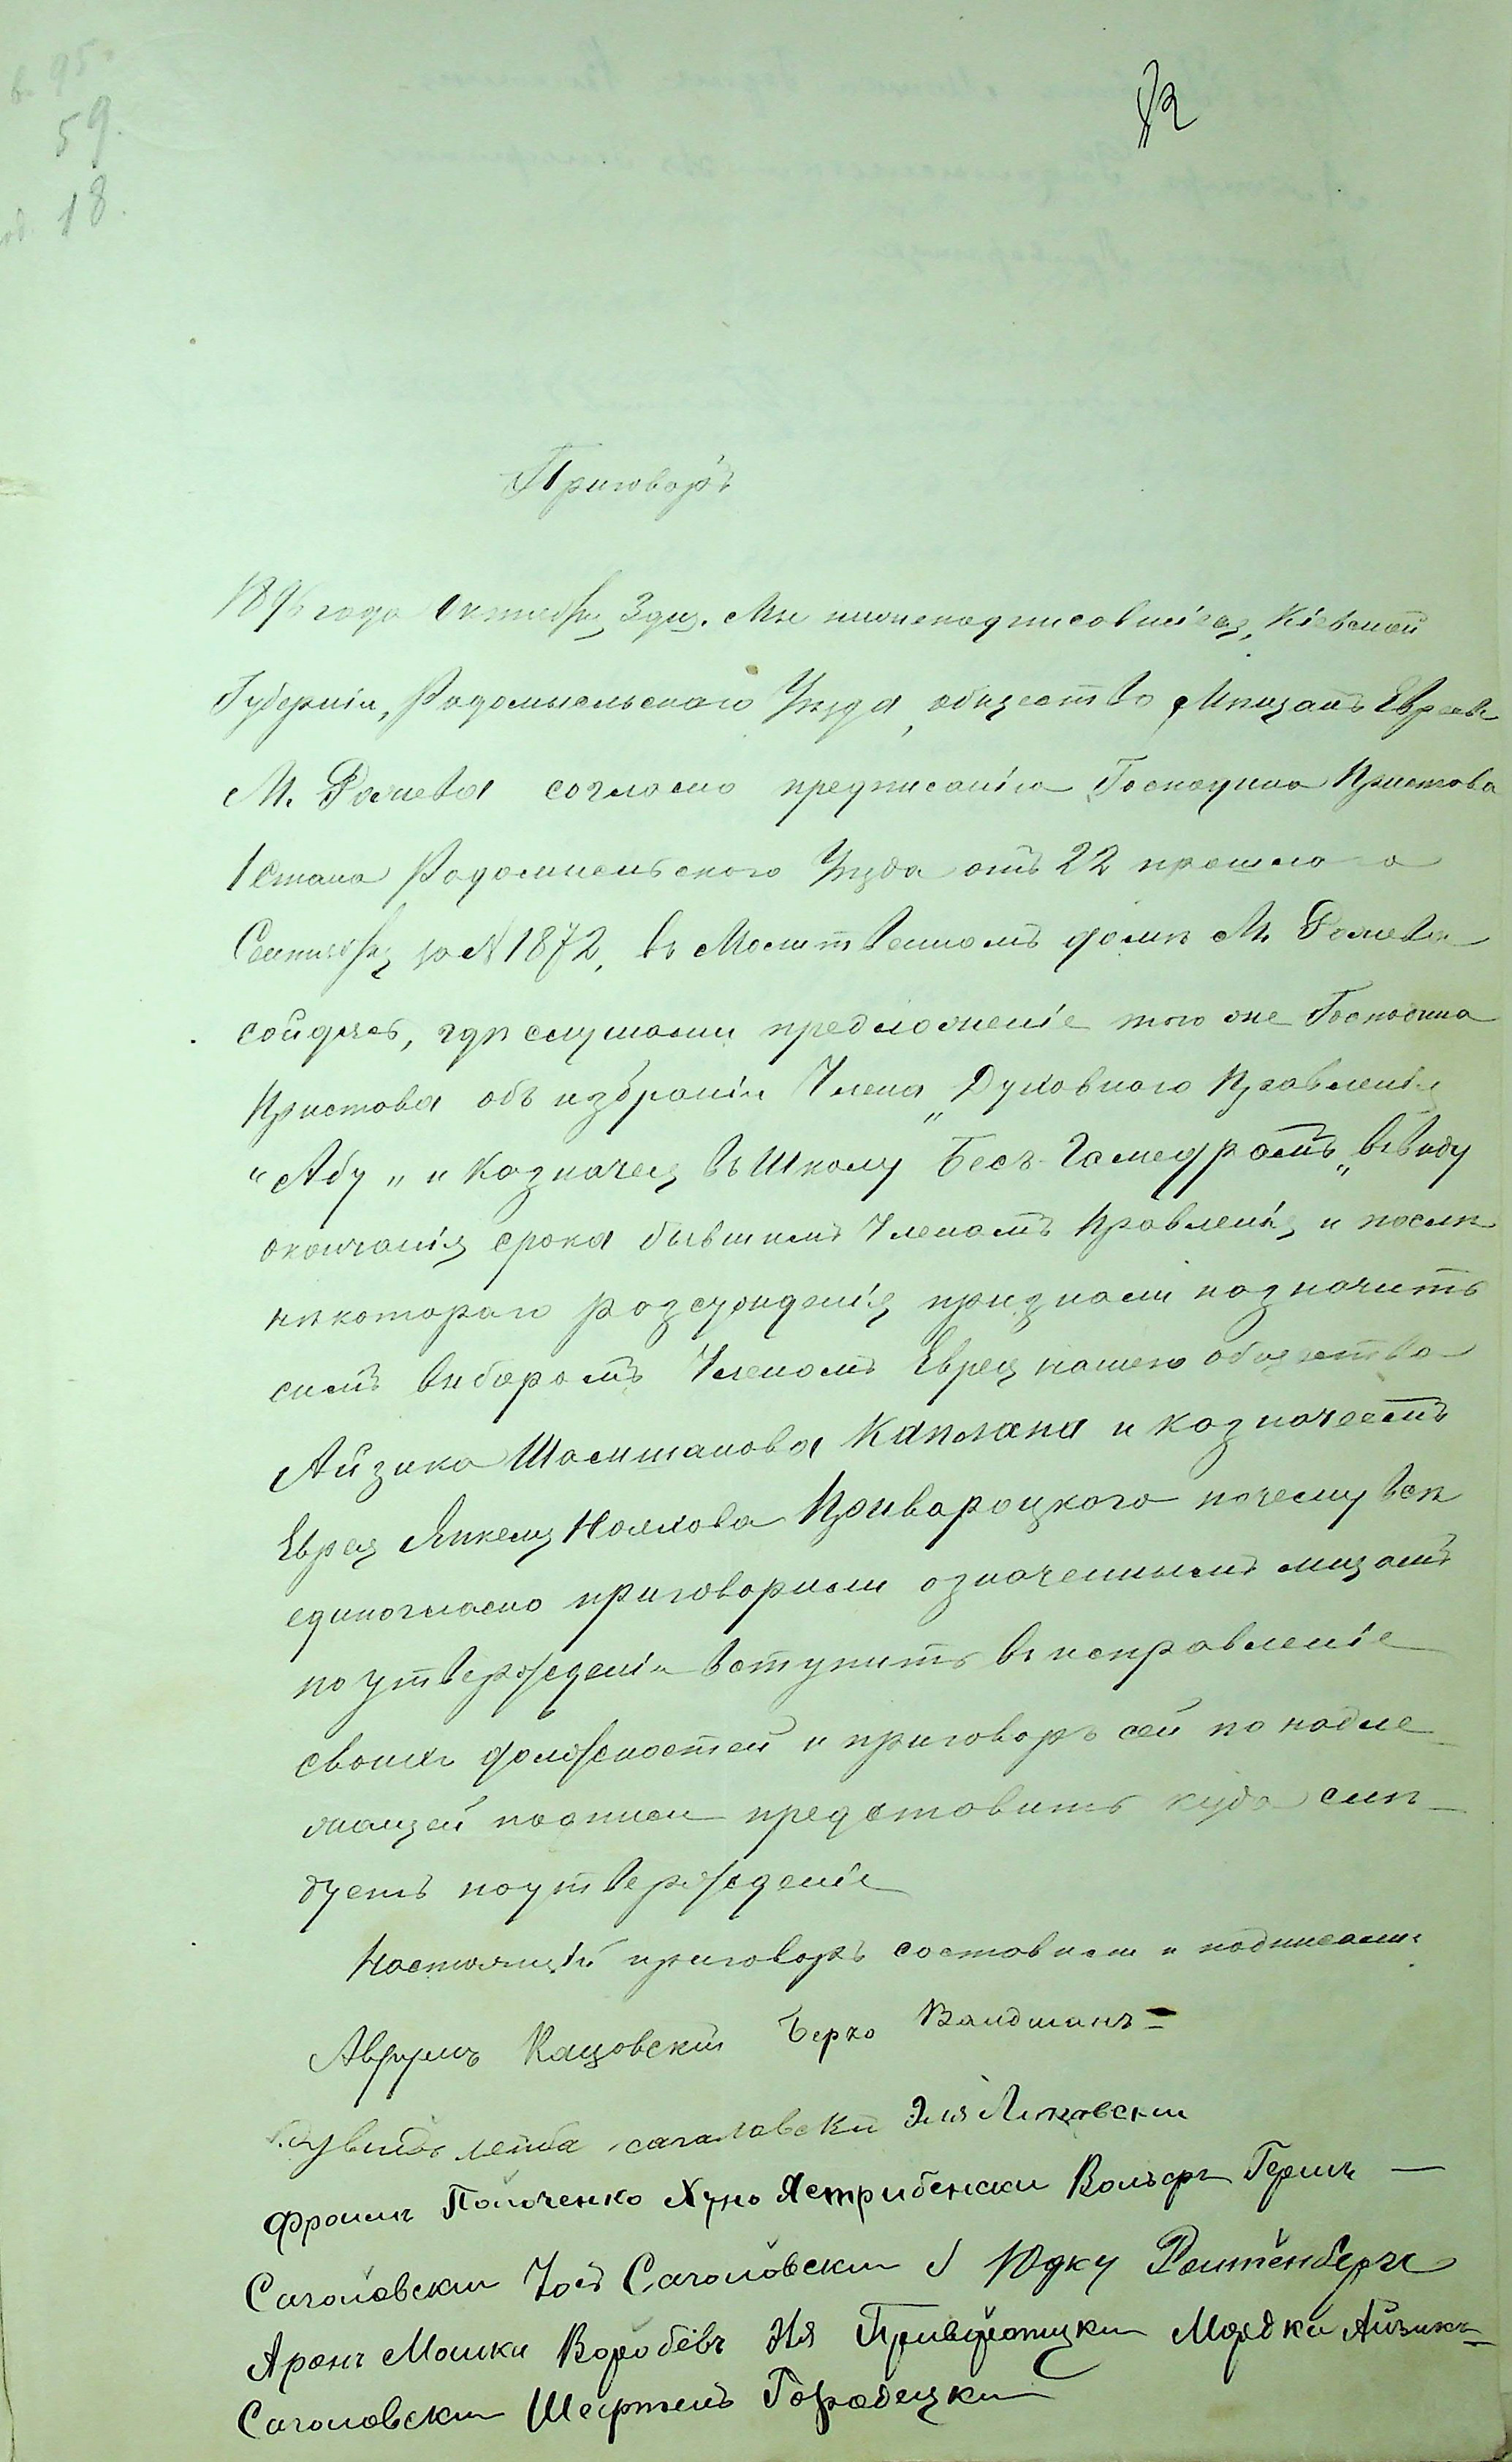 95.
59.
18.
Приговоръ
года Октября 3 дня. Мы нижеподписавшіеся, Кіевской
Губерніи, Радомысльскаго Уѣзда, общество Мѣщанъ Евреевъ
М. согласно предписанію Господина Пристава
1 Стана Радомысльскаго Уѣзда отъ 22 прошлаго
Сентября за № 1872, въ Молитвенномъ домѣ М.
сойдясь, гдѣ слушали предложеніе того же Господина
Пристава объ избраніи Члена „Духовнаго Правленія
"Абу" и Казначея въ Школу Бесъ-Гамедрашъ„ ввиду
окончанія срока бывшимъ Членамъ Правленія, и послѣ
нѣкотораго разсужденія признали назначить
симъ выборомъ Членомъ Еврея нашего общества
Айзика Каплана и казначеемъ
Еврея Янкеля почему всѣ
единогласно приговорили означеннымъ лицамъ
по утвержденіи вступить въ исправленіе
своихъ должностей и приговоръ сей по надле-
жащей подписи представить куда слѣ-
дуетъ по утвержденіе
Настоящій приговоръ составили и подписали:
Аврумъ Кацовскій Берко Валдманъ
лейба сагаловскій Эля
Фроимъ Полоченко Хуно Ястрибенски Вольфъ Гершъ —
Сагаловски Іось Сагаловски Юдку Ройтенбергъ
Аронъ Мошки Воробёвъ Ия Привороцки Мордко Айзикъ
Сагаловски Шефтель Городецки